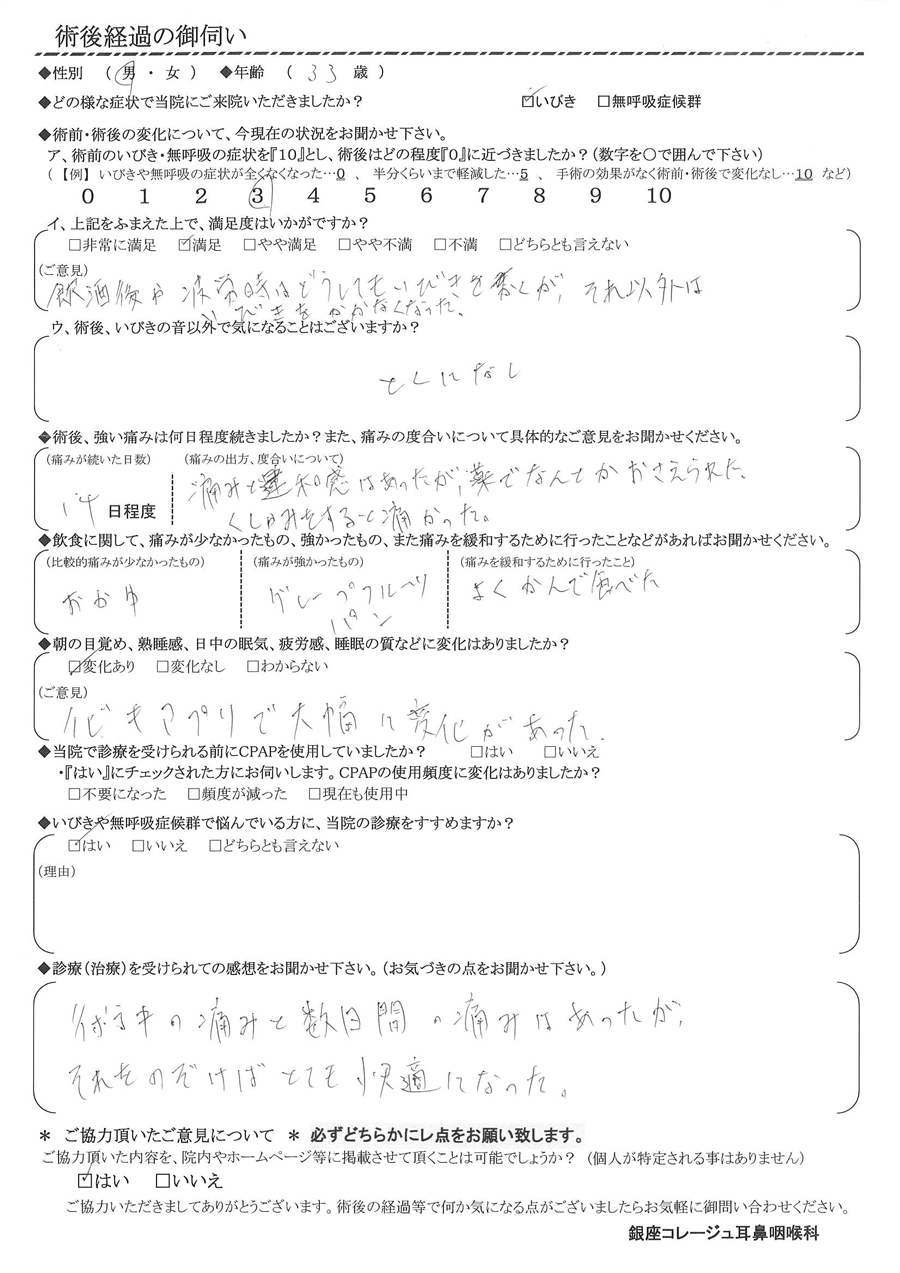 術後経過の御伺い
◆性別 （ 男 ・ 女 ） ◆年齢 （ 33 歳 ）
◆どの様な症状で当院にご来院いただきましたか？ ☑いびき □無呼吸症候群
◆術前・術後の変化について、今現在の状況をお聞かせ下さい。
ア、術前のいびき・無呼吸の症状を『10』とし、術後はどの程度『0』に近づきましたか？（数字を○で囲んで下さい）
（ 【例】 いびきや無呼吸の症状が全くなくなった…0 、 半分くらいまで軽減した…5 、 手術の効果がなく術前・術後で変化なし…10 など）
0 1 2 3 4 5 6 7 8 9 10
イ、上記をふまえた上で、満足度はいかがですか？
□非常に満足 ☑満足 □やや満足 □やや不満 □不満 □どちらとも言えない
（ご意見）
飲酒後や疲労時はどうしてもいびきをかくが、それ以外は
いびきをかかなくなった。
ウ、術後、いびきの音以外で気になることはございますか？
とくになし
◆術後、強い痛みは何日程度続きましたか？また、痛みの度合いについて具体的なご意見をお聞かせください。
（痛みが続いた日数） （痛みの出方、度合いについて）
14 日程度 痛みと違和感はあったが、薬でなんとかおさえられた。
くしゃみをすると痛かった。
◆飲食に関して、痛みが少なかったもの、強かったもの、また痛みを緩和するために行ったことなどがあればお聞かせください。
（比較的痛みが少なかったもの） （痛みが強かったもの） （痛みを緩和するために行ったこと）
おかゆ グレープフルーツ よくかんで食べた
パン
◆朝の目覚め、熟睡感、日中の眠気、疲労感、睡眠の質などに変化はありましたか？
☑変化あり □変化なし □わからない
（ご意見）
イビキアプリで大幅に変化があった。
◆当院で診療を受けられる前にCPAPを使用していましたか？ □はい □いいえ
・『はい』にチェックされた方にお伺いします。CPAPの使用頻度に変化はありましたか？
□不要になった □頻度が減った □現在も使用中
◆いびきや無呼吸症候群で悩んでいる方に、当院の診療をすすめますか？
☑はい □いいえ □どちらとも言えない
（理由）
◆診療（治療）を受けられての感想をお聞かせ下さい。（お気づきの点をお聞かせ下さい。）
術中の痛みと数日間の痛みはあったが、
それをのぞけばとても快適になった。
＊ ご協力頂いたご意見について ＊ 必ずどちらかにレ点をお願い致します。
ご協力頂いた内容を、院内やホームページ等に掲載させて頂くことは可能でしょうか？ （個人が特定される事はありません）
☑はい □いいえ
ご協力いただきましてありがとうございます。術後の経過等で何か気になる点がございましたらお気軽に御問い合わせください。
銀座コレージュ耳鼻咽喉科